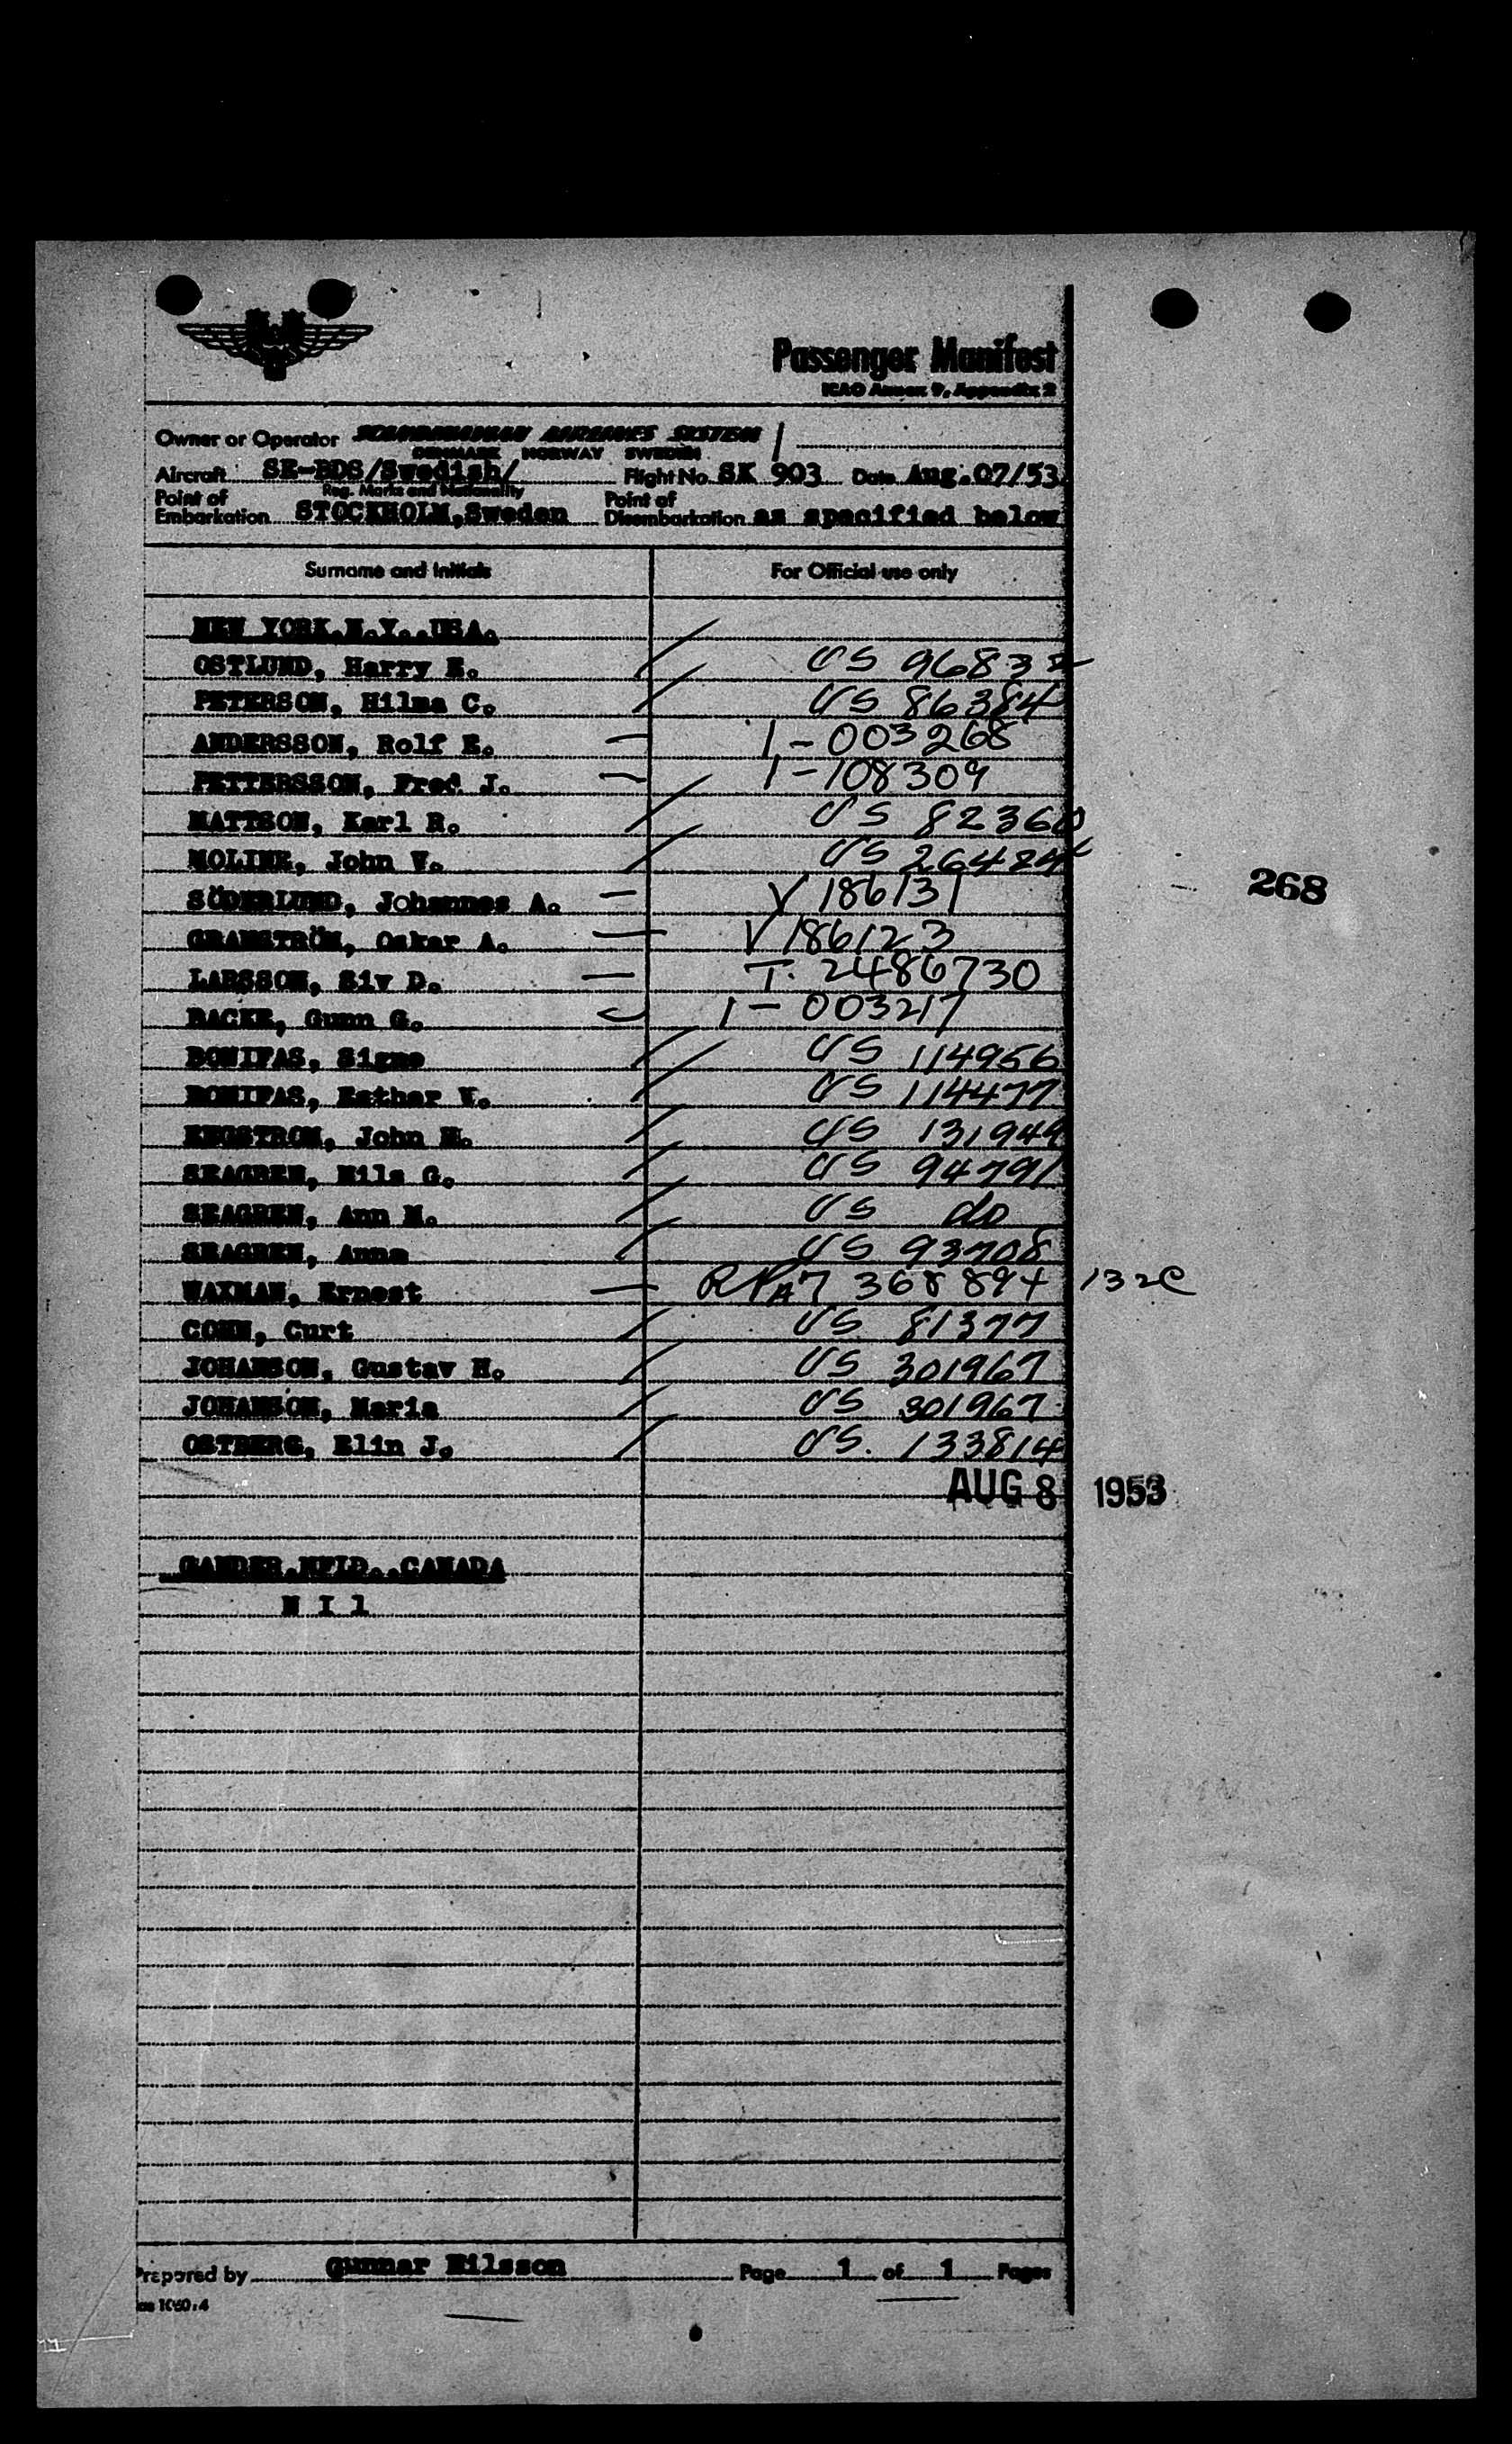 Passenger Manifest
ICAO Annex 9, Appendix 2
Owner or Operator SCANDINAVIAN AIRLINES SYSTEM
DENMARK NORWAY SWEDEN
Aircraft SE-BDS/Swedish/ Flight No. SK 903 Date Aug. 07/53
Reg. Marks and Nationality
Point of Embarkation STOCKHOLM, Sweden Point of Disembarkation as specified below
Surname and Initials For Official use only
NEW YORK.N.Y..USA.
OSTLUND, Harry E. US 96832
PETERSON, Hilma C. US 86384
ANDERSSON, Rolf E. — 1-003268
PETTERSSON, Fred J. — 1-108309
MATTSON, Karl R. US 82360
MOLINE, John V. US 26484
268
SÖDERLUND, Johannes A. — V 186131
GRANSTRÖM, Oskar A. — V 186123
LARSSON, Siv D. — T. 2486730
BACKE, Gunn G. 1-003217
BONIFAS, Signe US 114956
BONIFAS, Esther V. US 114477
ENGSTROM, John M. US 131944
SEAGREN, Nils G. US 94791
SEAGREN, Ann M. US do
SEAGREN, Anna US 93708
WAXMAN, Ernest — 368894 132C
COHN, Curt US 81377
JOHANSON, Gustav H. US 301967
JOHANSON, Maria US 301967
OSTBERG, Elin J. US. 133814
AUG 8 1953
GANDER.NFLD..CANADA
N I l
Prepared by Gunnar Nilsson Page 1 of 1 Pages